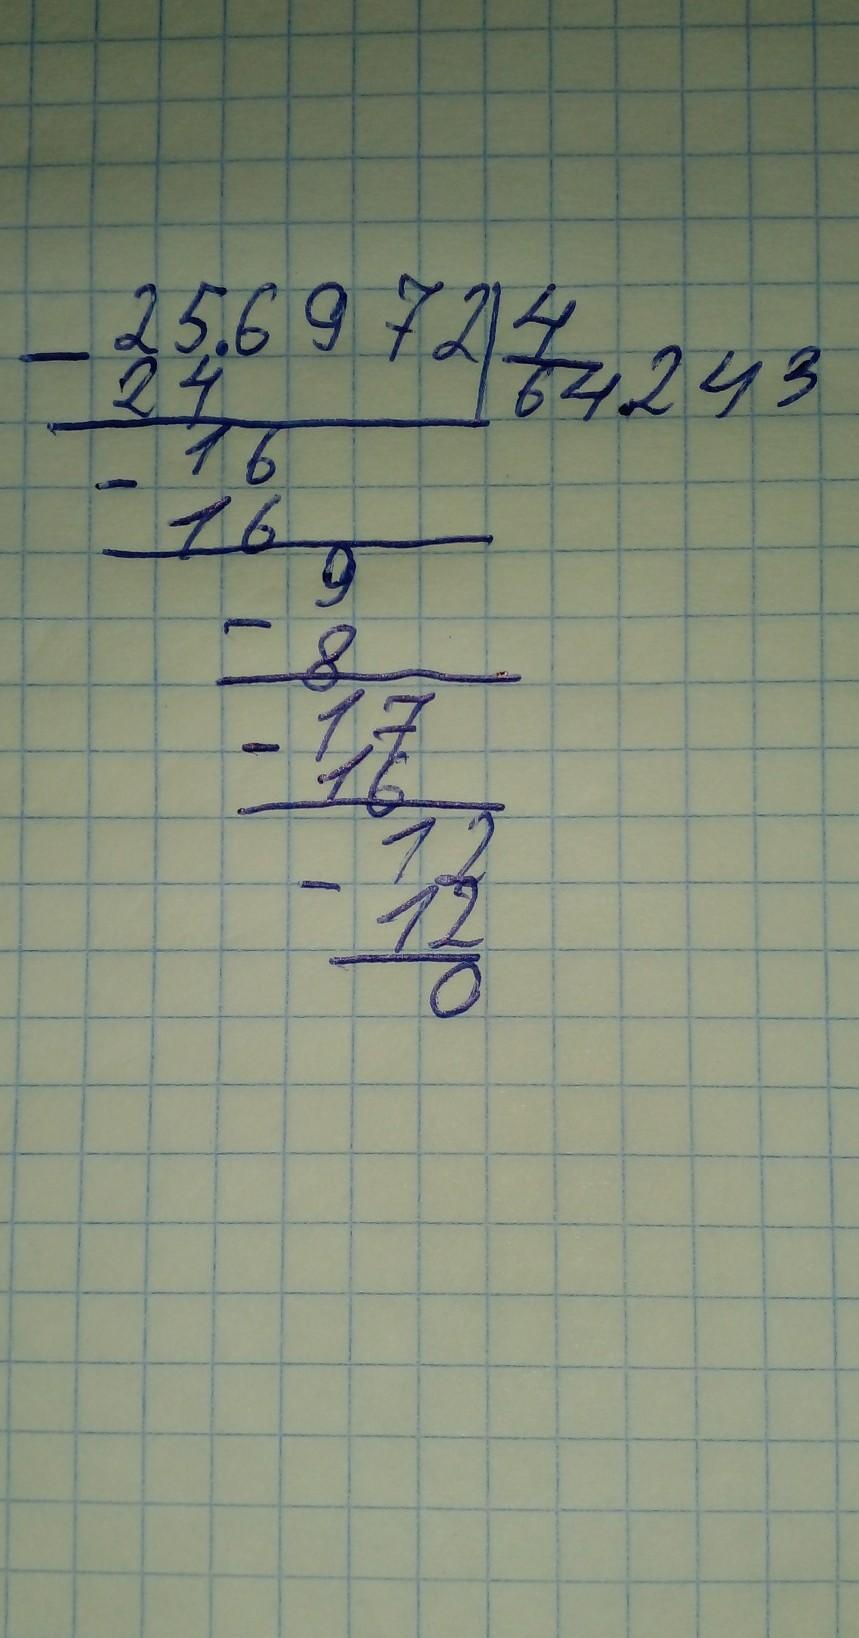 - 25.6972 | 4
24 64.243
- 16
16
9
- 8
- 17
16
12
- 12
0